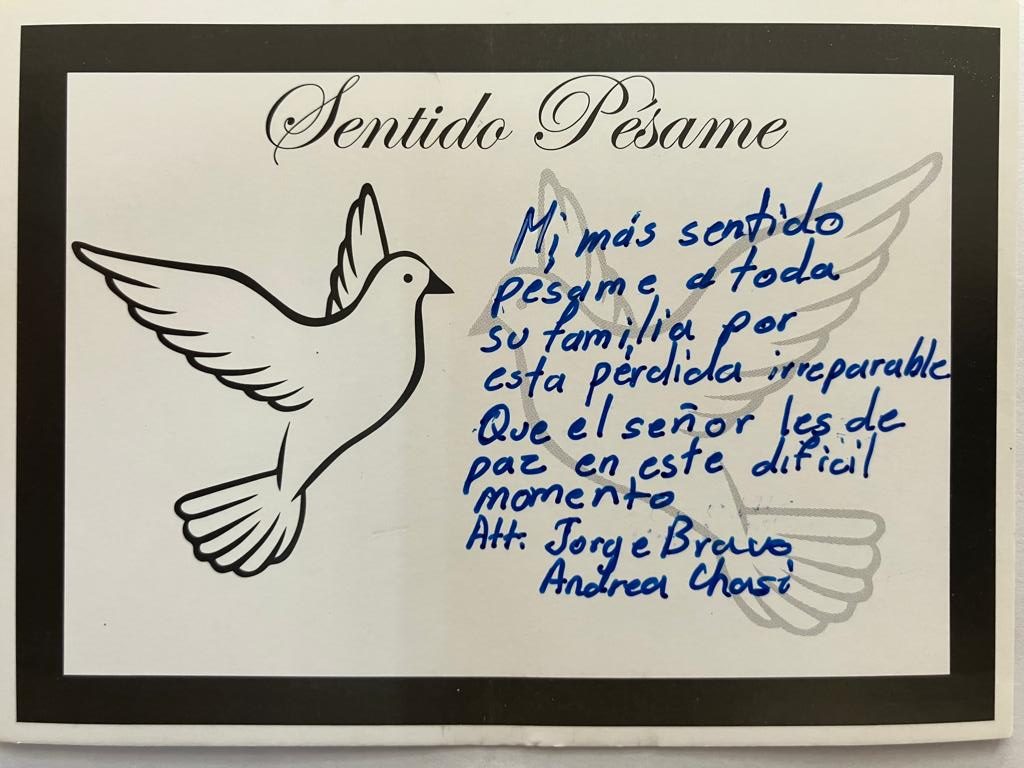 Sentido Pésame
Mi más sentido
pésame a toda
su familia por
esta pérdida irreparable
Que el señor les de
paz en este dificil
momento
Att. Jorge Bravo
Andrea Chasi